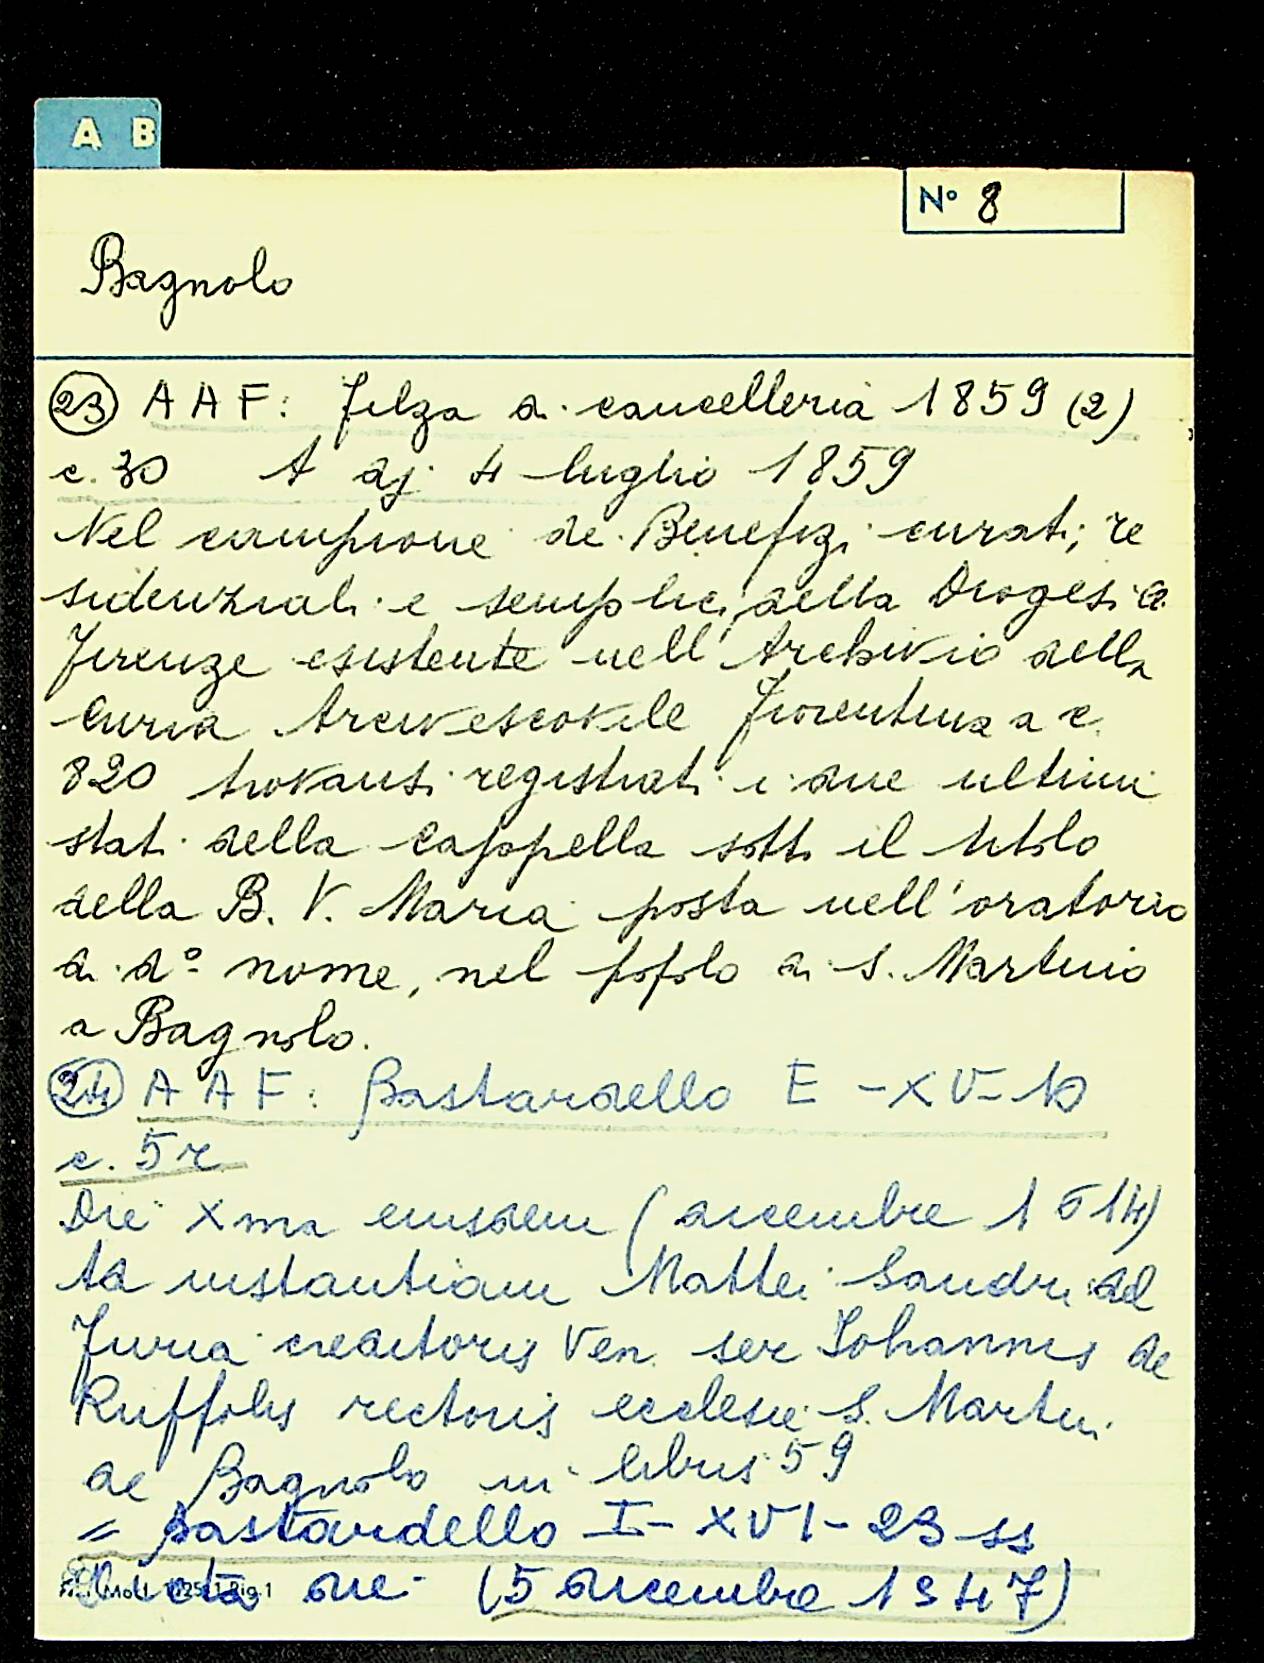 A B
N° 8
Bagnolo
23 A A F: Filza di cancelleria 1859 (2)
c. 30 A dj. 4 luglio 1859
Nel campione de Benefizi curati, re
sidenziali e semplici della Diogesi di
Firenze esistente nell'Archivio della
Curia Arcivescovile Fiorentina a c.
820 trovansi registrati i due ultimi
stati della Cappella sotto il titolo
della B. V. Maria posta nell'oratorio
di d° nome, nel popolo di S. Martino
a Bagnolo.
24 A A F: Bastardello E - XV - 10
c. 5r
Die Xma eiusdem (dicembre 1514)
Ad instantiam Mattei Sandri del
Furia creditoris Ven. ser Iohannis de
Ruffolis rectoris ecclesie S. Martini
de Bagnolo in libris 59
= Bastardello I - XVI - 23 ss
dicta die (5 dicembre 1347)